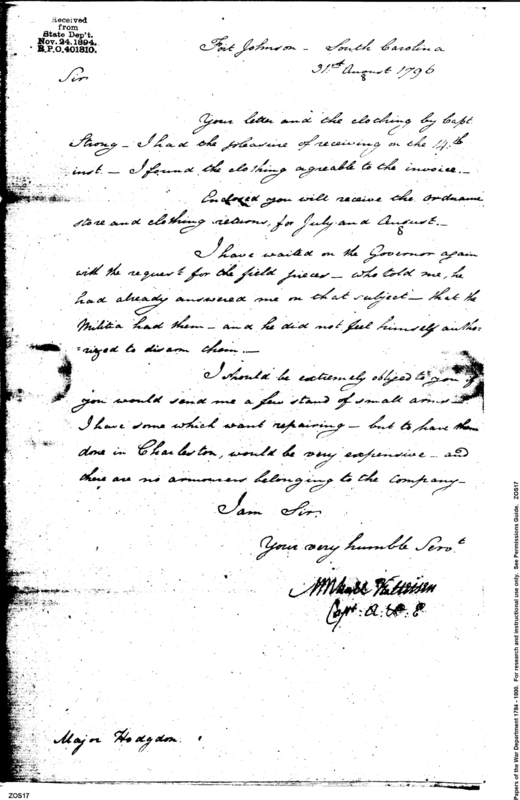 Received
from
State Dep't.
Nov. 24. 1894.
R.P.O. 401810.
Fort Johnson - South Carolina
31st August 1796
Sir
Your letter and the clothing by Capt
Strong - I had the pleasure of receiving on the 14th
inst. - I found the clothing agreable to the invoice. -
Enclosed you will receive the ordnance
store and clothing returns, for July and August. -
I have waited on the Governor again
with the request for the field pieces - who told me, he
had already answered me on that subject - that the
Militia had them - and he did not feel himself autho-
-rized to disarm them. -
I should be extremely obliged to you if
you would send me a few stand of small arms -
I have some which want repairing - but to have them
done in Charleston, would be very expensive - and
there are no armourers belonging to the company -
I am Sir
Your very humble Servt
Capt. A. & E
Major Hodgdon.
ZOS17
Papers of the War Department 1784 - 1800. For research and instructional use only. See Permissions Guide. ZOS17